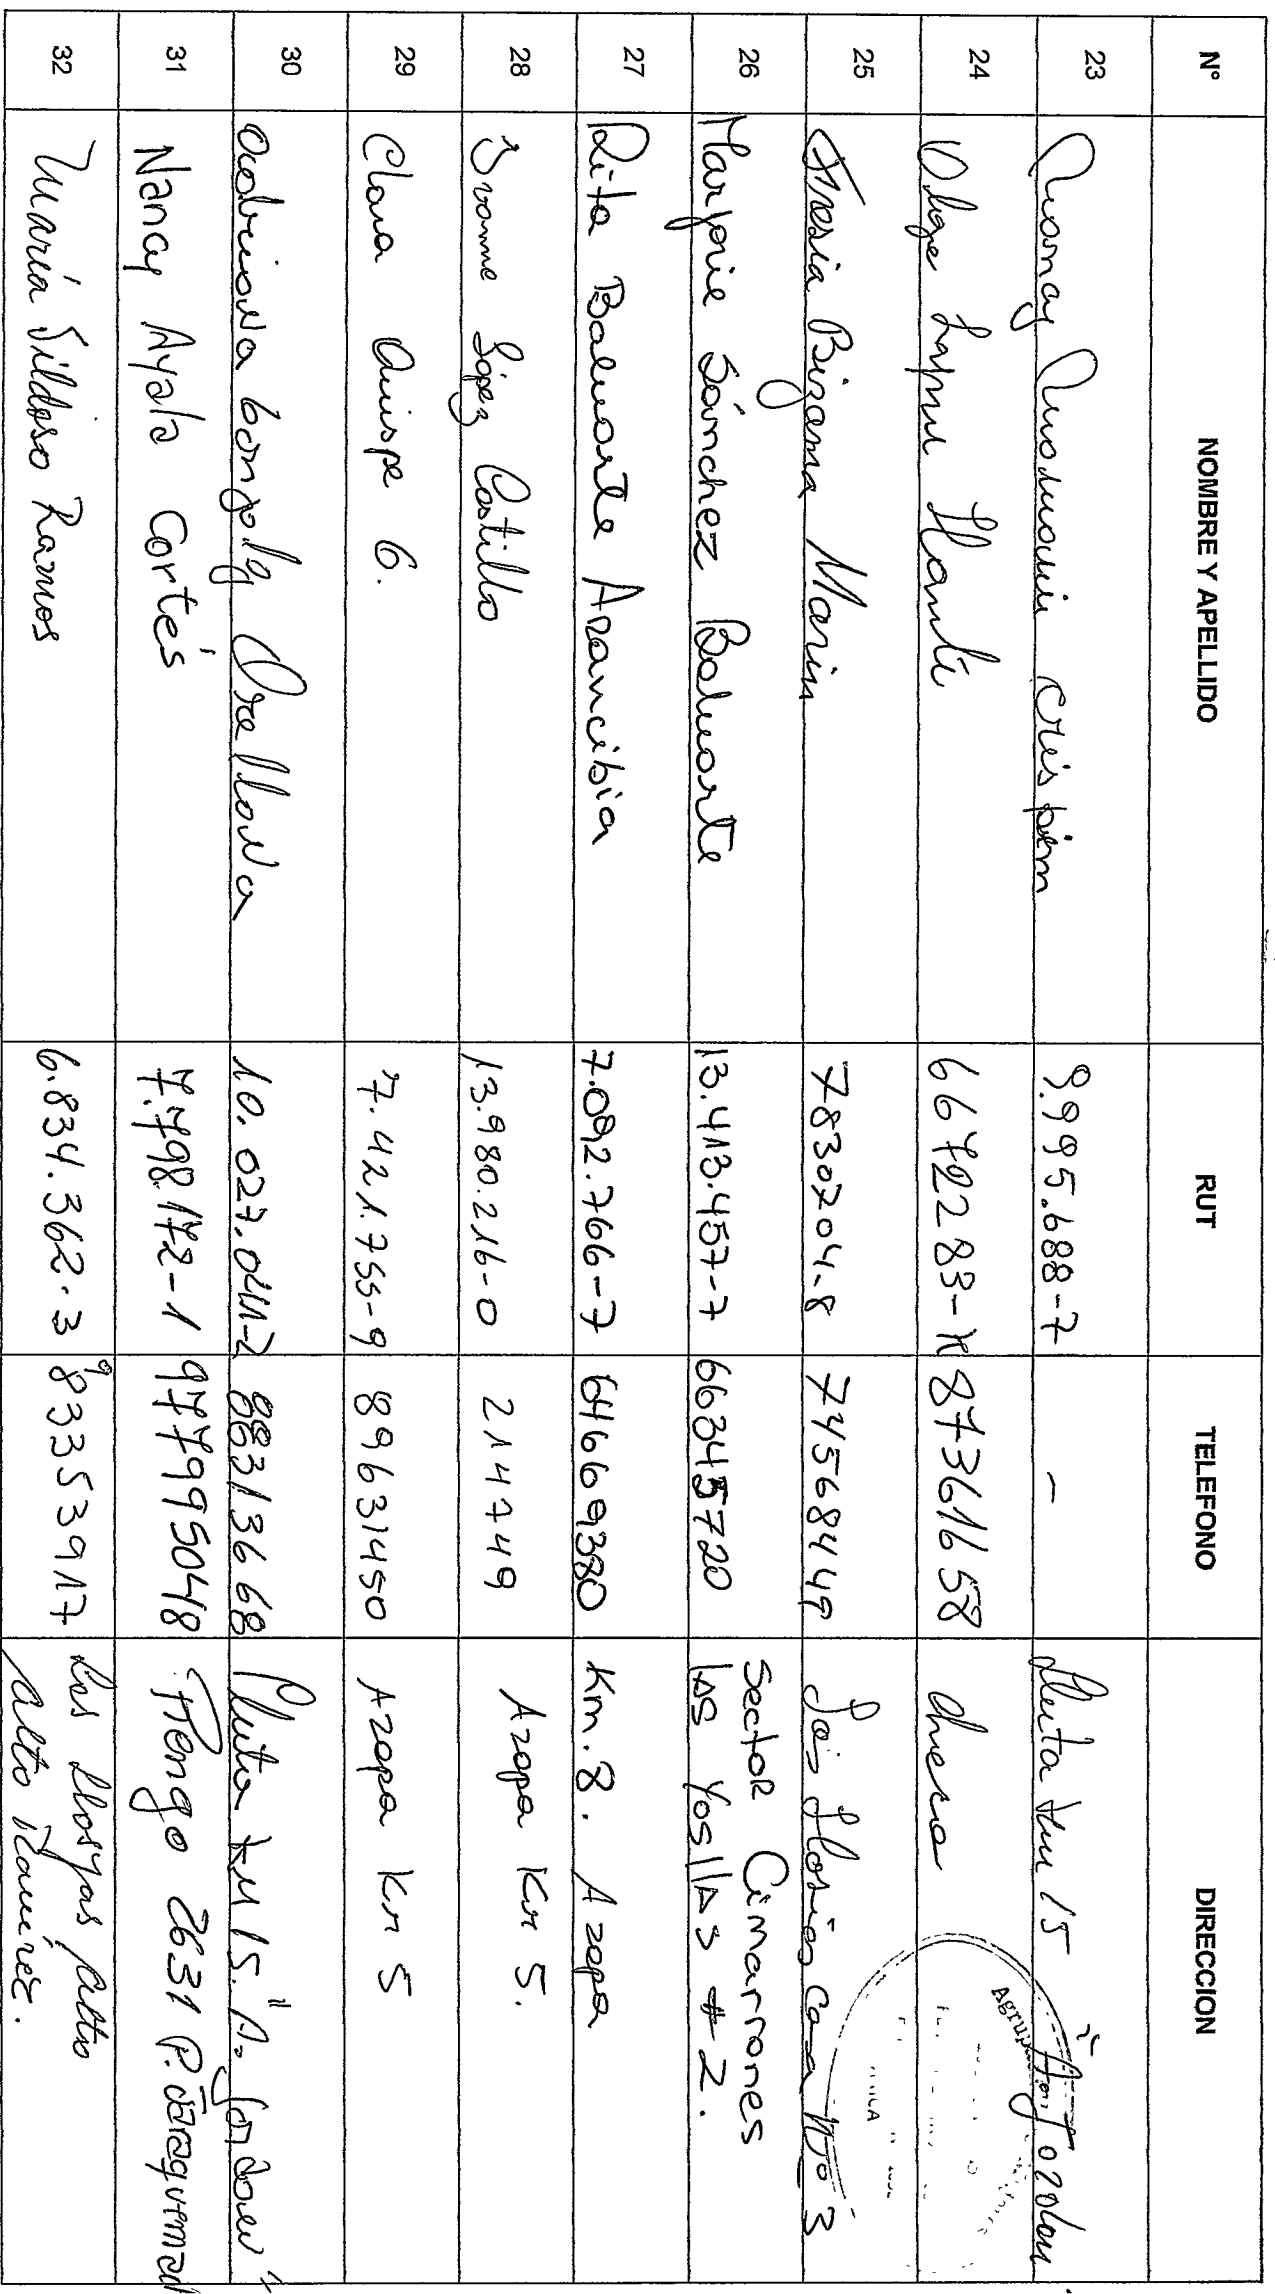 N° NOMBRE Y APELLIDO RUT TELEFONO DIRECCION
23 Mamani Crispin 9.995.688-7 - Lluta km 15
24 Olga 6672283-K 87361658
25 Fresia Bizama Marin 7830704-8 74568449 Casa Nº 3
26 Marjorie Sánchez Baluarte 13.413.457-7 66345720 Sector Cimarrones
las Yosllas # 2.
27 Rita Baluarte Arancibia 7.092.766-7 64669380 Km. 8. Azapa
28 Ivonne López Castillo 13.980.216-0 214749 Azapa Km 5.
29 Clara Quispe G. 7.421.755-9 89631450 Azapa Km 5
30 Orellana 10.027.041-2 88313668 Lluta KM 15.
31 Nancy Ayala Cortés 7.798.172-1 977995048 Rengo 2631
32 María Ramos 6.834.362-3 983353917 Las Lloyas Alto
Alto Ramírez.
Agrup